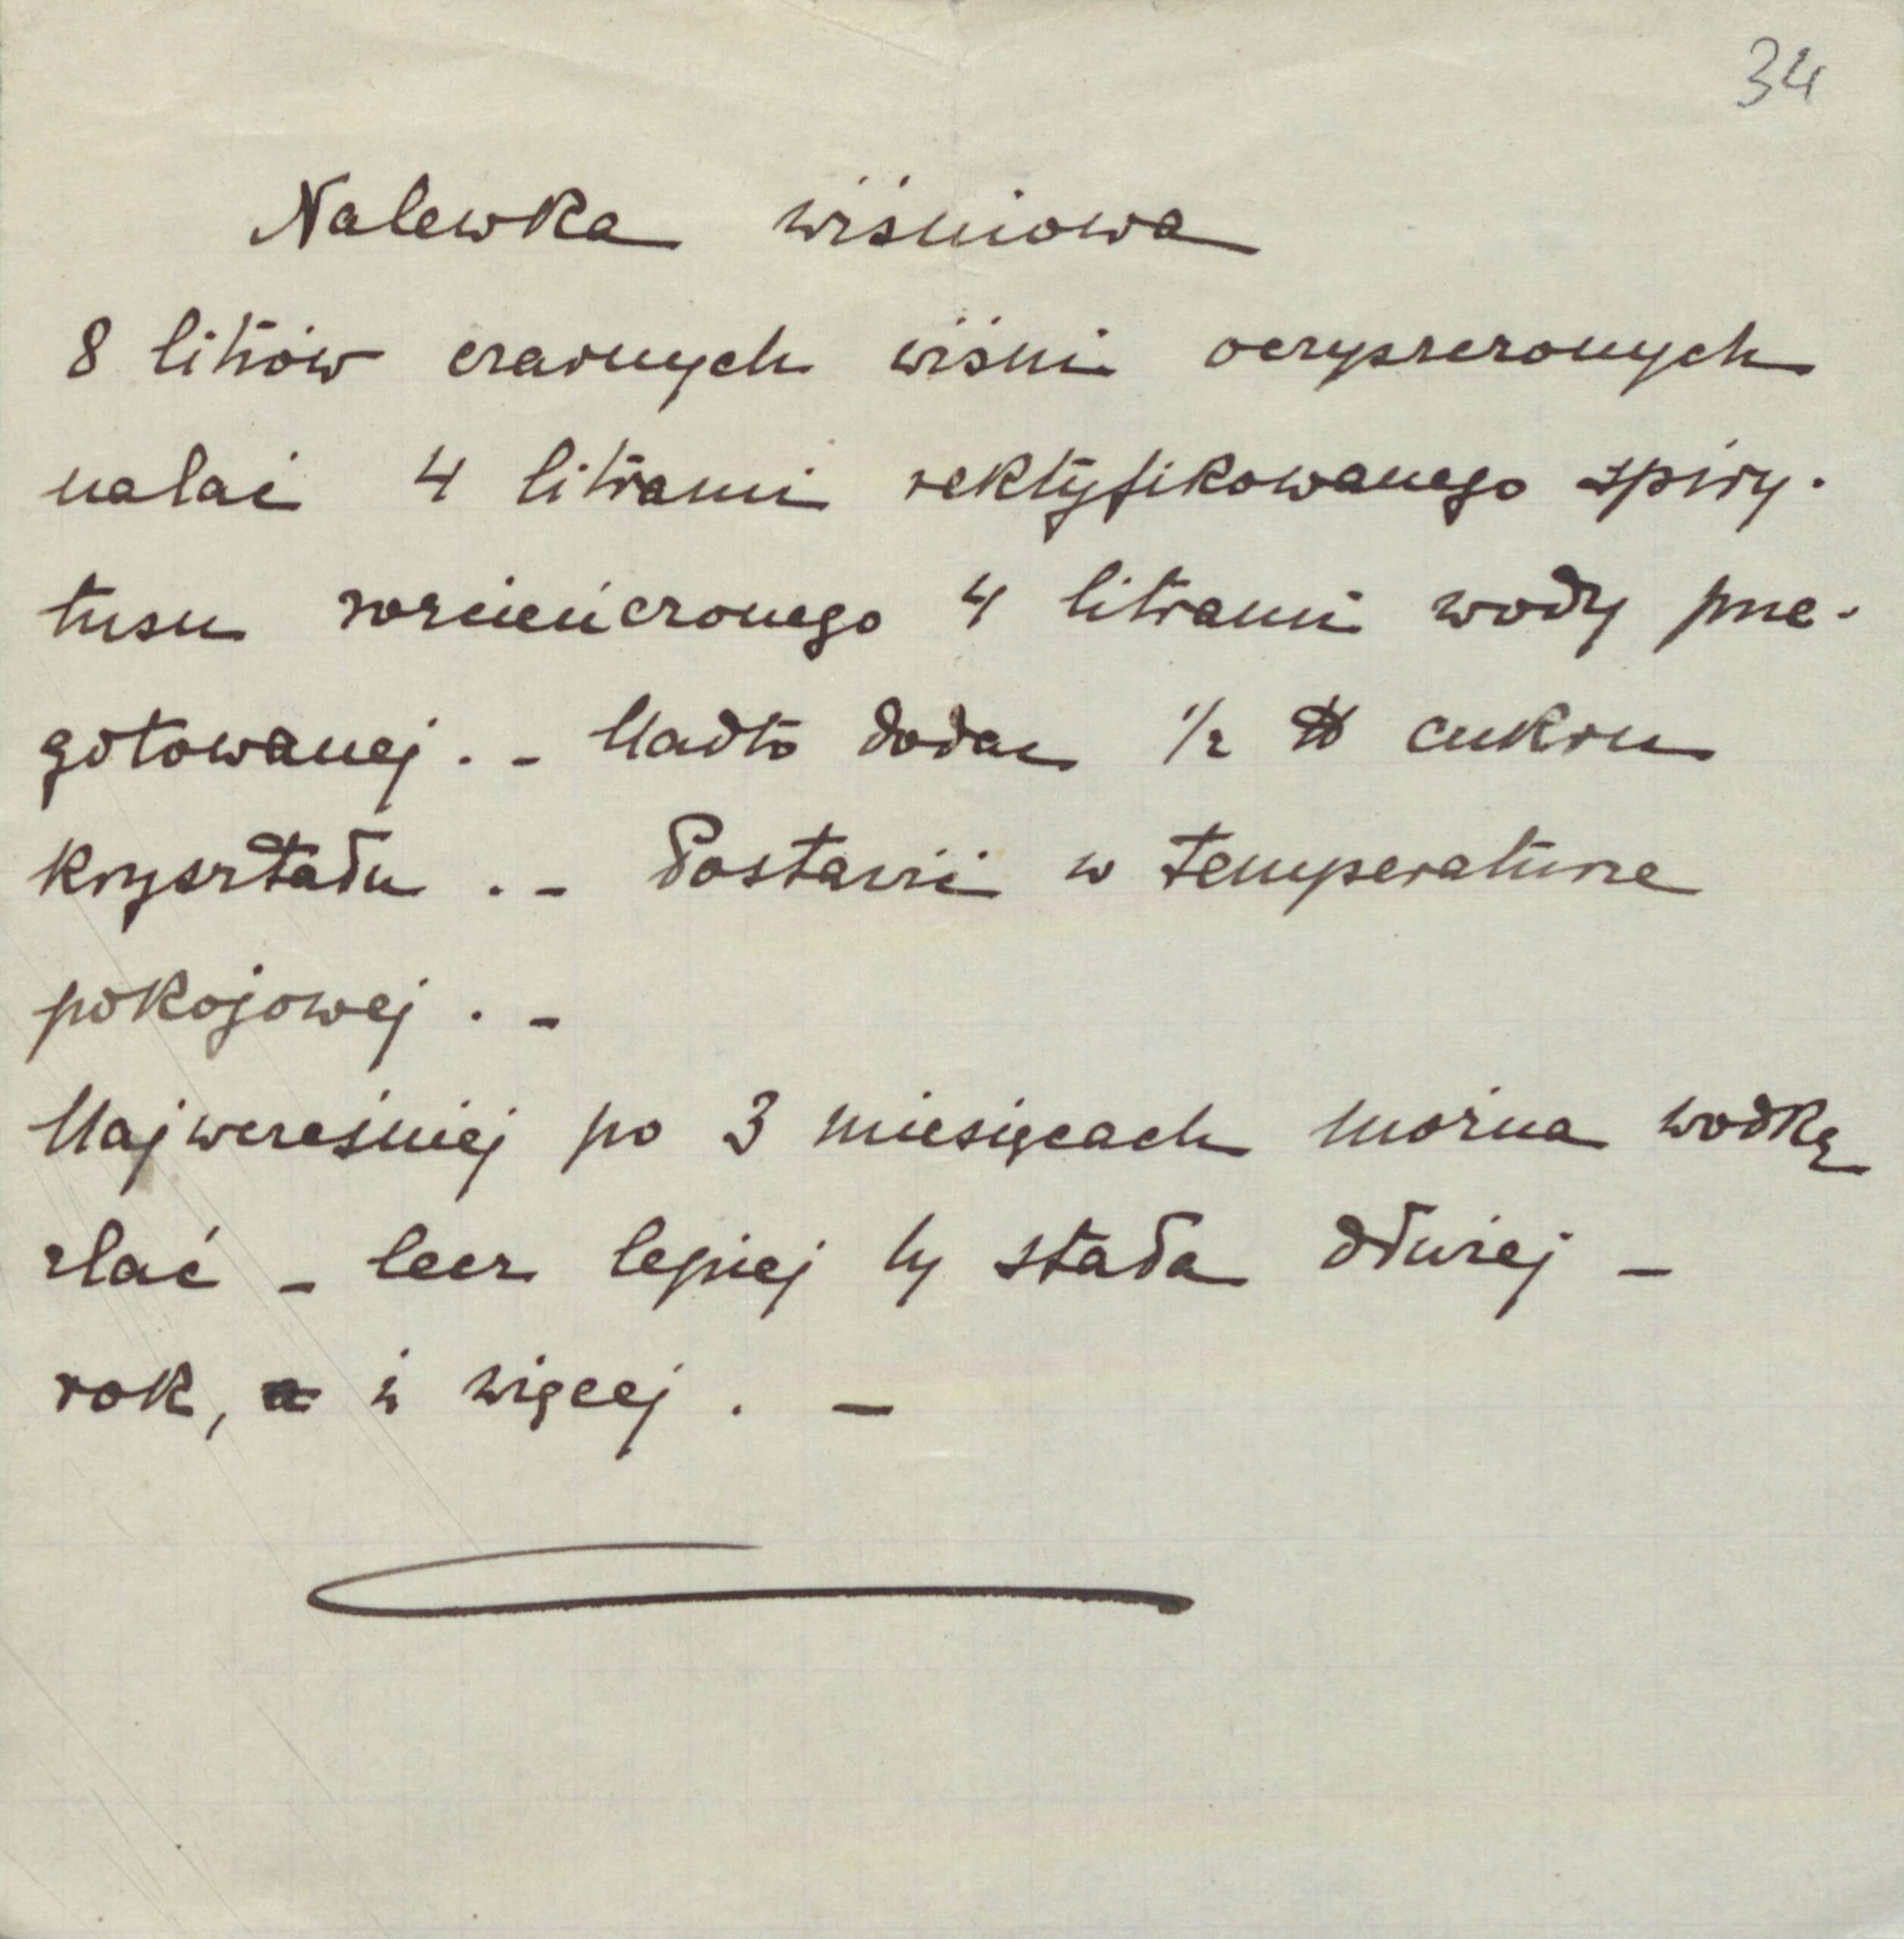 34
Nalewka wiśniowa
8 litrów czarnych wiśni oczyszczonych
nalać 4 litrami rektyfikowanego spiry-
tusu rozcieńczonego 4 litrami wody prze-
gotowanej. - Nadto dodać 1/2 ℔ cukru
kryształu . - Postawić w temperaturze
pokojowej . -
Najwcześniej po 3 miesiącach można wodkę
zlać - lecz lepiej by stała dłużej -
rok, a i więcej . -